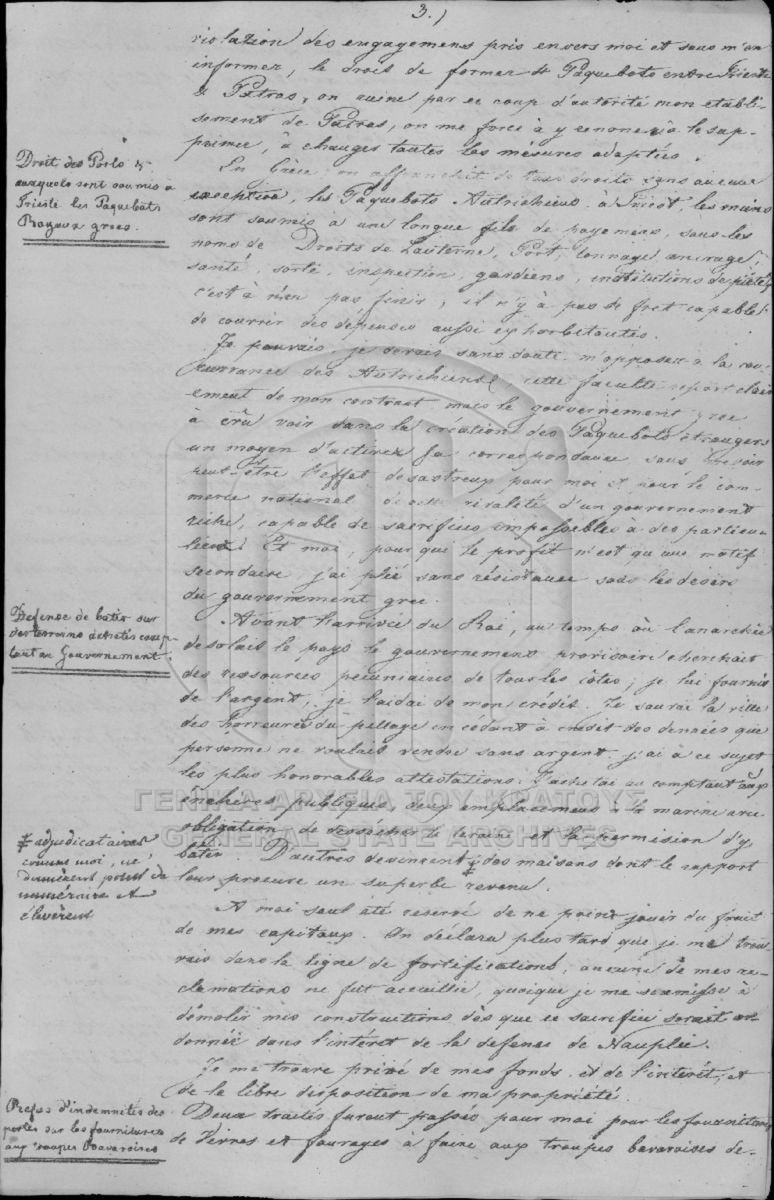 3.)
violation des engagemens pris envers moi et sans m'en
informer, le droit de former des Paquebots entre Trieste
& Patras, on ruine par ce coup d'autorité mon établi-
sement de Patras, on me force à y renoncer à le sup-
primer, à changer toutes les mésures adoptées.
Droit des Ports &
auxquels sont soumis à
Trieste les Paquebots
Royaux grecs.
En Grèce on affranchit de tous droits sans aucune
exception, les Paquebots Autrichiens à Triest, les miens
sont soumis à une longue file de payemens, sous les
noms de Droits de Lanterne, Port, tonnage, ancrage,
santé, sortie, inspection, gardiens, institutions de piété;
c'est à n'en pas finir, il n'y à pas de fret capable
de couvrir des dépenses aussi exhorbitantes.
Je pouvais, je devais sans doute m'opposer à la con-
currance des Autrichiens, cette faculté ressort claire
ement de mon contract mais le gouvernement grec
à crû voir dans la création des Paquebots étrangers
un moyen d'activer sa correspondance sans prévoir
peut-être l'effet desastreux pour moi et pour le com-
merce national de cette rivalité d'un gouvernement
riche, capable de sacrifices impossibles à des particu-
liers. Et moi, pour qui le profit n'est qu'une motif
secondaire j'ai plié sans résistance sous les désirs
du gouvernement grec.
Defense de batir sur
des terrains achetés comp-
tant au Gouvernement.
Avant l'arrivée du Roi, au temps où l'anarchie
desolait le pays le gouvernement provisoire cherchait
des ressources pécuniaires de tous les côtés; je lui fournis
de l'argent, je l'aidai de mon crédit. Je sauvai la ville
des horreurs du pillage en cédant à credit des denrées que
personne ne voulait vendre sans argent j'ai à ce sujet
les plus honorables attestations. J'achetai au comptant aux
enchères publiques, deux emplacemens à la marine avec
obligation de dessécher le terrain et la permission d'y
batir. D'autres devinrent ‡ des maisons dont le rapport
leur procure un superbe revenu.
‡ adjudicataires
comme moi, ne
donnèrent point de
numéraire et
élevèrent
A moi seul été reservé de ne point jouir du fruit
de mes capitaux. On déclara plus tard que je me trou-
vais dans la ligne de fortifications; aucune de mes re-
clamations ne fut accueillie, quoique je me soumisse à
démolir mes constructions dès que ce sacrifice serait or-
donnée dans l'intérêt de la defense de Nauplie.
Je me trouve privé de mes fonds et de l'intérêt, et
de la libre disposition de ma propriété.
Refus d'indemnités des
pertes sur les fournitures
aux troupes Bavaroises
Deux traités furent passés pour moi pour les fournitures
de Vivres et fourages à faire aux troupes bavaroises de-
ΓΕΝΙΚΑ ΑΡΧΕΙΑ ΤΟΥ ΚΡΑΤΟΥΣ
GENERAL STATE ARCHIVES